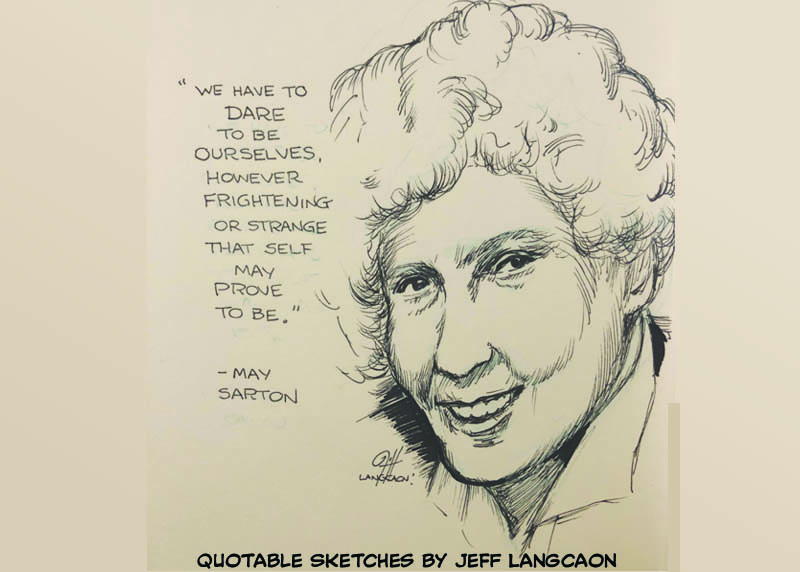 "WE HAVE TO
DARE
TO BE
OURSELVES,
HOWEVER
FRIGHTENING
OR STRANGE
THAT SELF
MAY
PROVE
TO BE."
- MAY
SARTON
Jeff
LANGCAON!
QUOTABLE SKETCHES BY JEFF LANGCAON